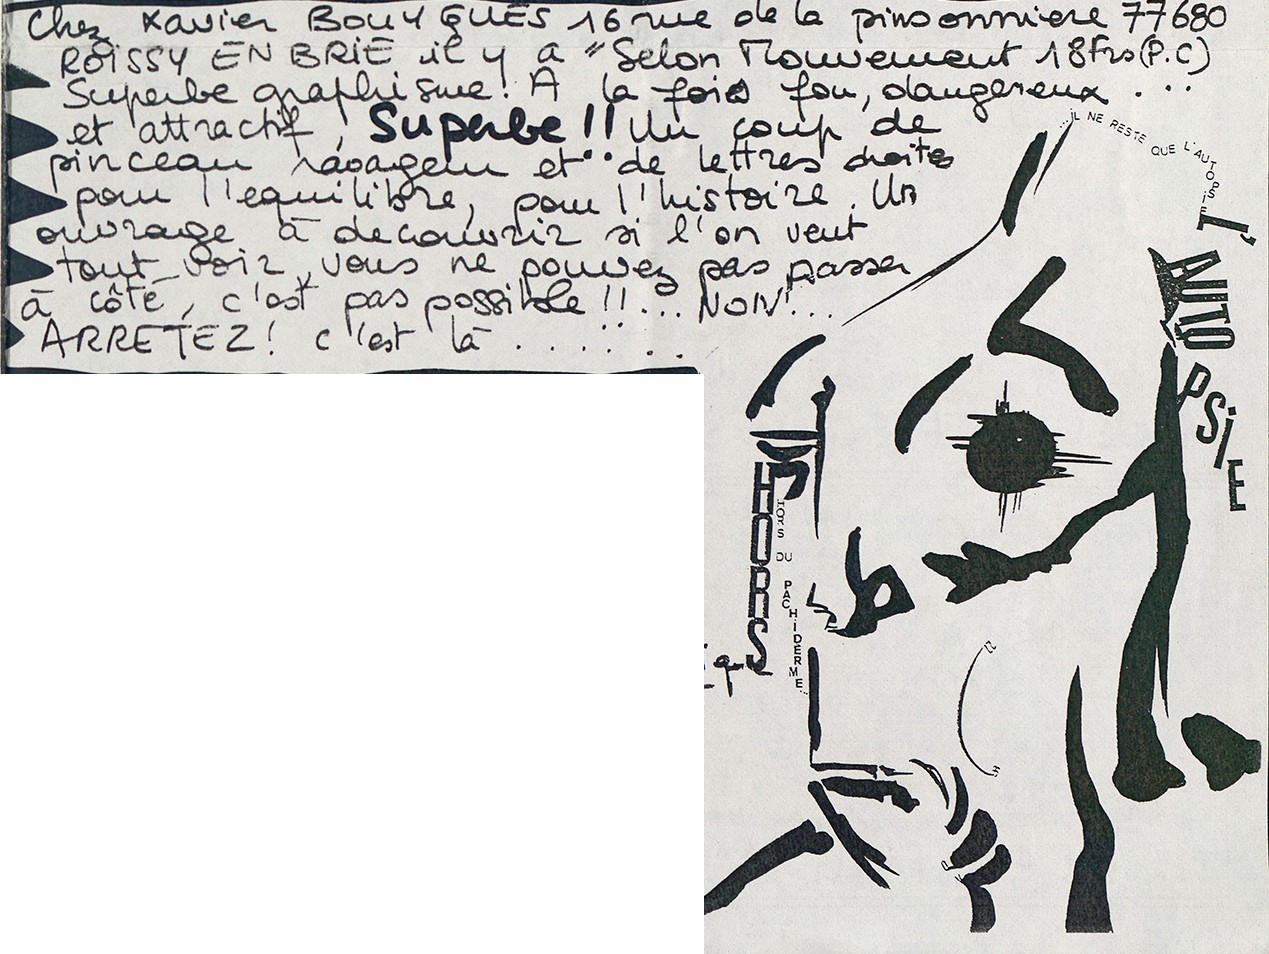 Chez Xavier BOUYGUES 16 rue de la pinsonniere 77680
ROISSY EN BRIE il y a "Selon Mouvement 18Frs (P.C)
Superbe graphisme! A la fois fou, dangereux ...
et attractif, Superbe!! Un coup de
pinceau ravageur et.. de lettres droites
pour l'equilibre, pour l'histoire. Un
ouvrage à decouvrir si l'on veut
tout voir, vous ne pouvez pas passer
à côté, c'est pas possible!!... NON!...
ARRETEZ! c'est là .......
...IL NE RESTE QUE L'AUTOPSIE
L'AUTOPSIE
HORS
HORS DU PACHIDERME...